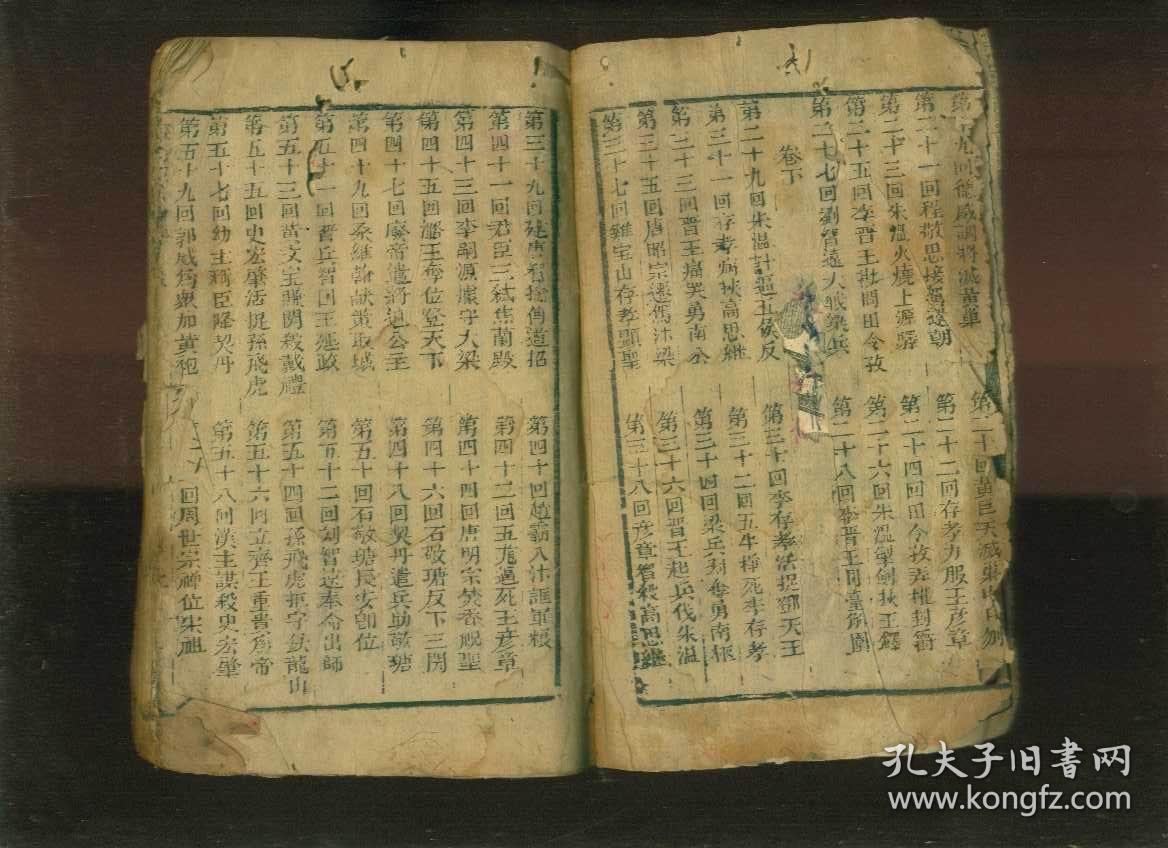 第二十一回程敬思接駕還朝
第二十二回存孝力服王彦章
第二十三回朱溫火燒上源驛
第二十四回田令孜弄權封
第二十五回李晉王 問田令孜
第二十六回朱溫掣劍 王鐸
第二十七回劉智遠大戰梁兵
第二十八回 晉王
卷下
第二十九回朱溫計逼五侯反
第三十回李存孝活捉鄧天王
第三十一回存孝病挾高思継
第三十二回五牛 死李存孝
第三十三回晉王痛哭勇南公
第三十四回梁兵 勇南
第三十五回唐昭宗遷 汴梁
第三十六回晉王起兵伐朱溫
第三十七回雞宝山存孝顯聖
第三十八回彦章智殺高思継
第三十九回 唐 道招
第四十回趙霸入汴誆軍粮
第四十一回君臣三 焦蘭殿
第四十二回五龙逼死王彦章
第四十三回李嗣源 守大梁
第四十四回唐明宗焚香祝聖
第四十五回潘王 位登天下
第四十六回石敬瑭反下三関
第四十七回廢帝遣將追公主
第四十八回契丹遣兵助敬瑭
第四十九回桑維翰献 取城
第五十回石敬瑭長安即位
第五十一回晋兵智囬王延政
第五十二回刘智远奉命出師
第五十三回苗文宝賺関殺戴禮
第五十四回孫飛虎拒守 龍山
第五十五回史宏肇活捉孫飛虎
第五十六回立齊王重貴為帝
第五十七回幼主稱臣降契丹
第五十八回漢主謀殺史宏肇
第五十九回郭威為衆加黃袍
回周世宗禅位宋祖
孔夫子旧书网
www.kongfz.com